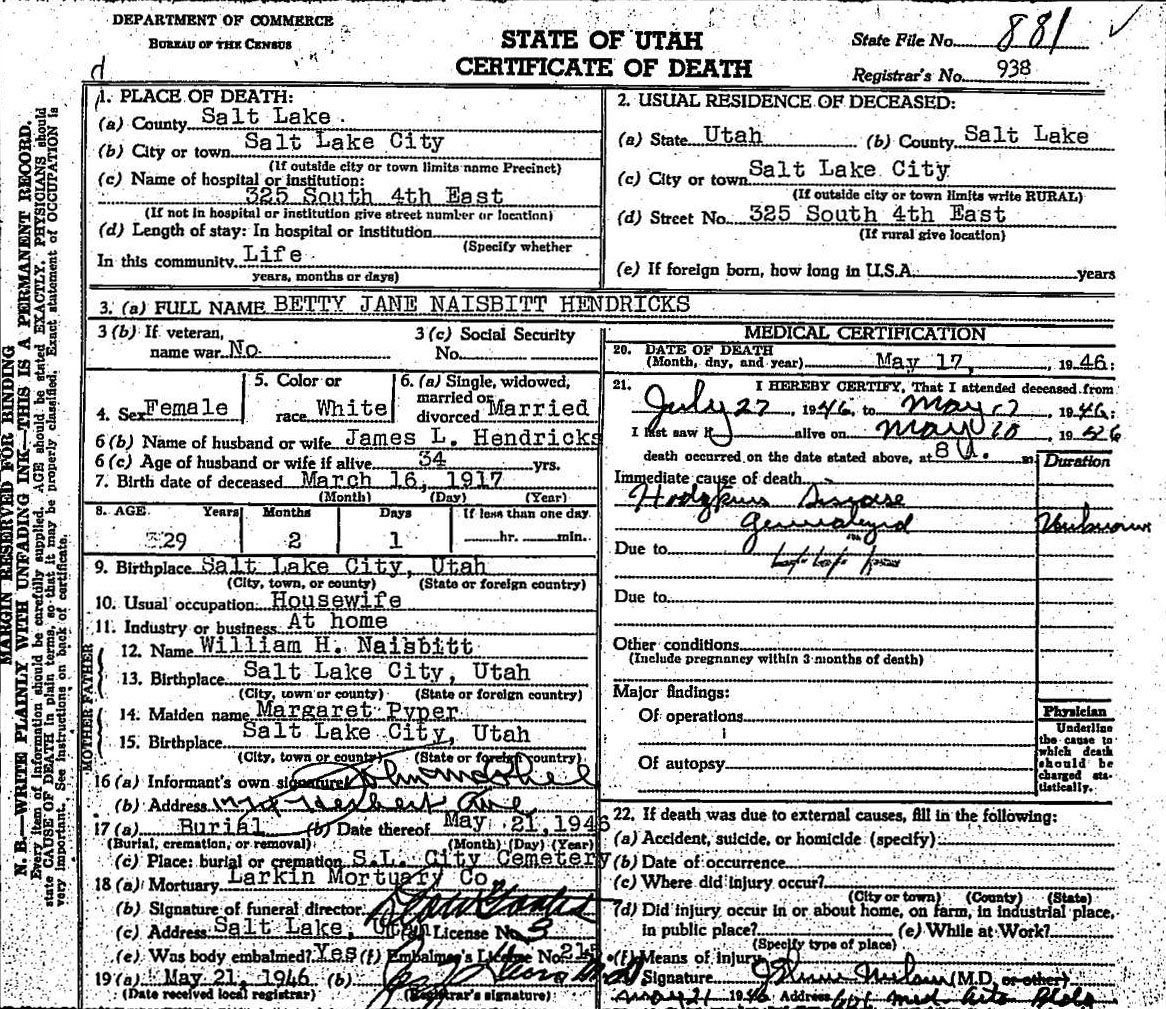 DEPARTMENT OF COMMERCE
BUREAU OF THE CENSUS
STATE OF UTAH
CERTIFICATE OF DEATH
State File No. 881 ✓
Registrar's No. 938
d
MARGIN RESERVED FOR BINDING
N. B.—WRITE PLAINLY WITH UNFADING INK—THIS IS A PERMANENT RECORD.
Every item of information should be carefully supplied. AGE should be stated EXACTLY. PHYSICIANS should
state CAUSE OF DEATH in plain terms, so that it may be properly classified. Exact statement of OCCUPATION is
very important. See instructions on back of certificate.
1. PLACE OF DEATH:
(a) County Salt Lake
(b) City or town Salt Lake City
(If outside city or town limits name Precinct)
(c) Name of hospital or institution:
325 South 4th East
(If not in hospital or institution give street number or location)
(d) Length of stay: In hospital or institution
(Specify whether
In this community Life
years, months or days)
2. USUAL RESIDENCE OF DECEASED:
(a) State Utah (b) County Salt Lake
(c) City or town Salt Lake City
(If outside city or town limits write RURAL)
(d) Street No. 325 South 4th East
(If rural give location)
(e) If foreign born, how long in U.S.A. years
3. (a) FULL NAME BETTY JANE NAISBITT HENDRICKS
3 (b) If veteran, name war No
3 (c) Social Security No.
4. Sex Female
5. Color or race White
6. (a) Single, widowed, married or divorced Married
6 (b) Name of husband or wife James L. Hendricks
6 (c) Age of husband or wife if alive 34 yrs.
7. Birth date of deceased March 16, 1917
(Month) (Day) (Year)
8. AGE Years Months Days If less than one day
29 2 1 hr. min.
9. Birthplace Salt Lake City, Utah
(City, town, or county) (State or foreign country)
10. Usual occupation Housewife
11. Industry or business At home
FATHER
12. Name William H. Naisbitt
13. Birthplace Salt Lake City, Utah
(City, town or county) (State or foreign country)
MOTHER
14. Maiden name Margaret Pyper
15. Birthplace Salt Lake City, Utah
(City, town or county) (State or foreign country)
16 (a) Informant's own signature John
(b) Address Ave
17 (a) Burial (b) Date thereof May 21, 1946
(Burial, cremation, or removal) (Month) (Day) (Year)
(c) Place: burial or cremation S.L. City Cemetery
18 (a) Mortuary Larkin Mortuary Co
(b) Signature of funeral director
(c) Address Salt Lake, Utah License No. 3
(e) Was body embalmed? Yes (f) Embalmer's License No. 215
19 (a) May 21, 1946 (b)
(Date received local registrar) (Registrar's signature)
MEDICAL CERTIFICATION
20. DATE OF DEATH
(Month, day, and year) May 17, 1946:
21. I HEREBY CERTIFY, That I attended deceased from
July 27, 1946, to May 17, 1946:
I last saw h alive on May 10, 19
death occurred on the date stated above, at 8 A. m
Duration
Immediate cause of death
Hodgkins Disease
Generalized Unknown
Due to
Due to
Other conditions
(Include pregnancy within 3 months of death)
Major findings:
Of operations
Of autopsy
Physician
Underline
the cause to
which death
should be
charged sta-
tistically.
22. If death was due to external causes, fill in the following:
(a) Accident, suicide, or homicide (specify)
(b) Date of occurrence
(c) Where did injury occur?
(City or town) (County) (State)
(d) Did injury occur in or about home, on farm, in industrial place,
in public place? (e) While at Work?
(Specify type of place)
(f) Means of injury
Signature (M.D. or other)
May 21 1946 Address 601 Med. Arts Bldg